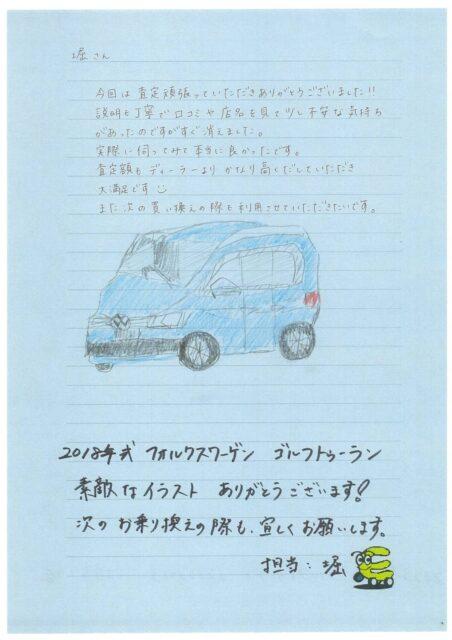 堀さん
今回は査定頑張っていただきありがとうございました!!
説明も丁寧で口コミや店名を見て少し不安な気持ち
があったのですがすぐ消えました。
実際に伺ってみて本当に良かったです。
査定額もディーラーよりかなり高くだしていただき
大満足です
また次の買い換えの際も利用させていただきたいです。
2018年式 フォルクスワーゲン ゴルフトゥーラン
素敵なイラスト ありがとうございます!
次のお乗り換えの際も、宜しくお願いします。
担当:堀